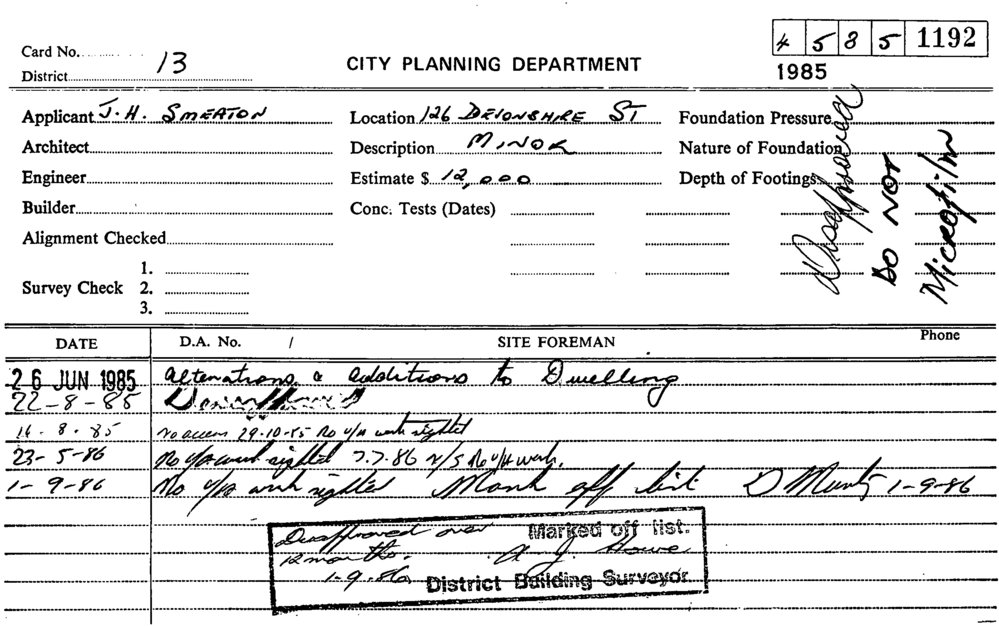 4 5 8 5 1192
1985
Card No.
District 13
CITY PLANNING DEPARTMENT
Applicant J.H. SMEATON
Location 126 DEVONSHIRE ST
Foundation Pressure
Architect
Description MINOR
Nature of Foundation
Engineer
Estimate $ 12,000
Depth of Footings
Disapproved
DO NOT
Microfilm
Builder
Conc. Tests (Dates)
Alignment Checked
Survey Check 1.
2.
3.
DATE D.A. No. / SITE FOREMAN Phone
26 JUN 1985 Alterations & additions to Dwelling
22-8-85
14-8-85 no access 29-10-85 No u/a work sighted
23-5-86 No u/a work sighted 7.7.86 N/S No u/a work.
1-9-86 No u/a work sighted Mark off list D 1-9-86
Disapproved over Marked off list.
12 months. A J. Howe
1-9-86 District Building Surveyor.